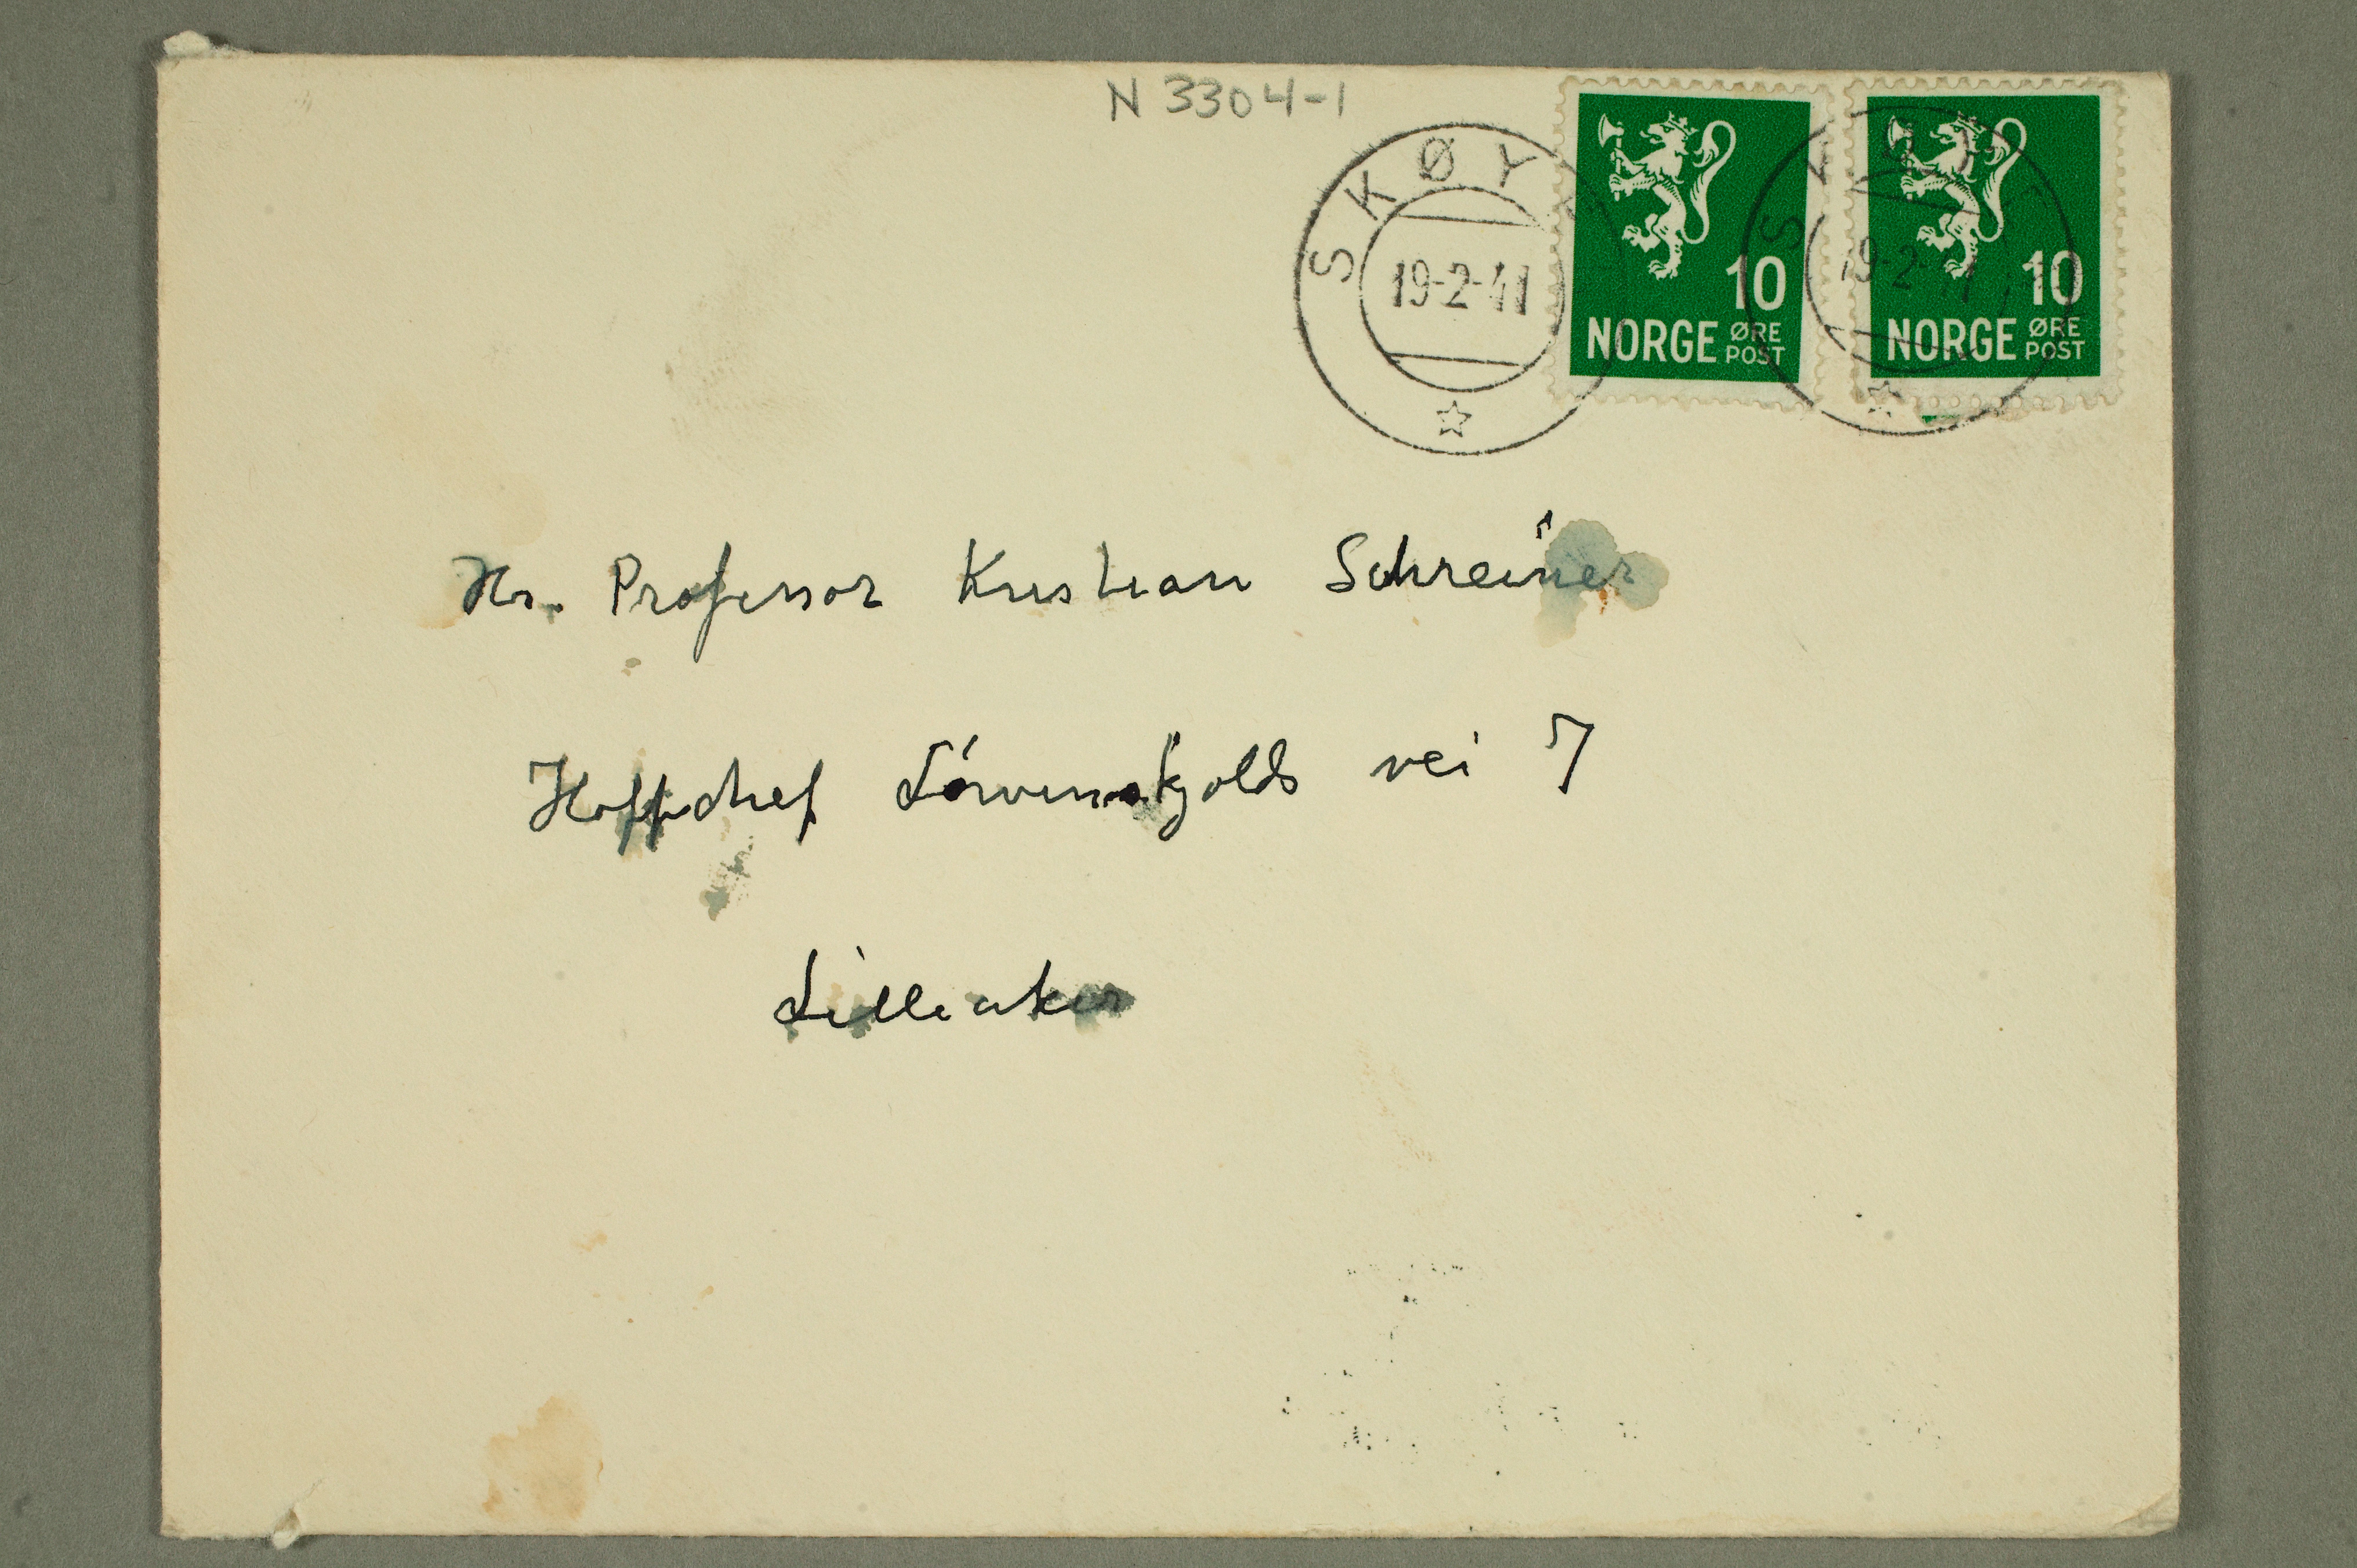 N 3304-1
SKØYEN
19-2-41
10
NORGE ØRE POST
SKØYEN
19-2-41
10
NORGE ØRE POST
Hr. Professor Kristian Schreiner
Hoffchef Lövenskjolds vei 7
Lilleaker